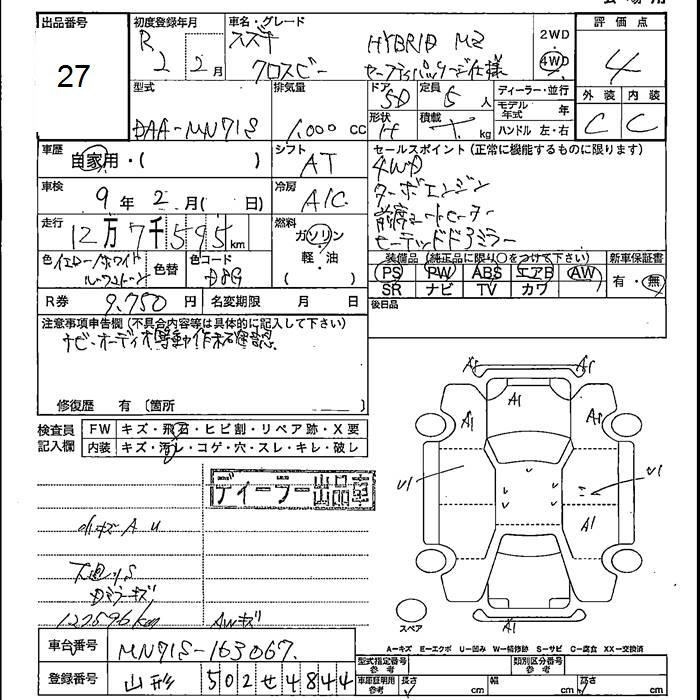 出品番号
27
初度登録年月
R 2 2月
車名・グレード
スズキ HYBRID MZ
クロスビー セーフティパッケージ仕様
2WD
4WD
評価点
4
型式
DAA-MN71S
排気量
1,000 cc
ドア
5D
定員
5 人
形状
積載
kg
ディーラー・並行
モデル年式 年
ハンドル 左・右
外装
内装
C
C
車歴
自家用・( )
シフト
AT
セールスポイント(正常に機能するものに限ります)
4WD
ターボエンジン
前席シートヒーター
ヒーテッドドアミラー
車検
9年 2月( 日)
冷房
A/C
走行
12万7千595 km
燃料
ガソリン
軽・油
( )
色
イエロー/ホワイト
色替
色コード
装備品(純正品に限り○をつけて下さい)
新車保証書
PS PW ABS エアB AW
SR ナビ TV カワ
有・無
R券
9,750 円
名変期限 月 日
後日品
注意事項申告欄(不具合内容等は具体的に記入して下さい)
ナビ・オーディオ等動作未確認
修復歴 有 〔箇所 〕
検査員記入欄
FW キズ・飛石・ヒビ割・リペア跡・X要
内装 キズ・汚レ・コゲ・穴・スレ・キレ・破レ
ディーラー出品車
小キズ A U
Dミラーキズ
127596km
AWキズ
A1
A1
A1
A1
A1
U1
U1
A1
A1
スペア
A-キズ E-エクボ U-凹み W-補修跡 S-サビ C-腐食 XX-交換済
車台番号
MN71S-163067
登録番号
山形 502 せ 4844
型式指定番号
参考
類別区分番号
参考
車庫証明用
参考
長さ cm
幅 cm
高さ cm